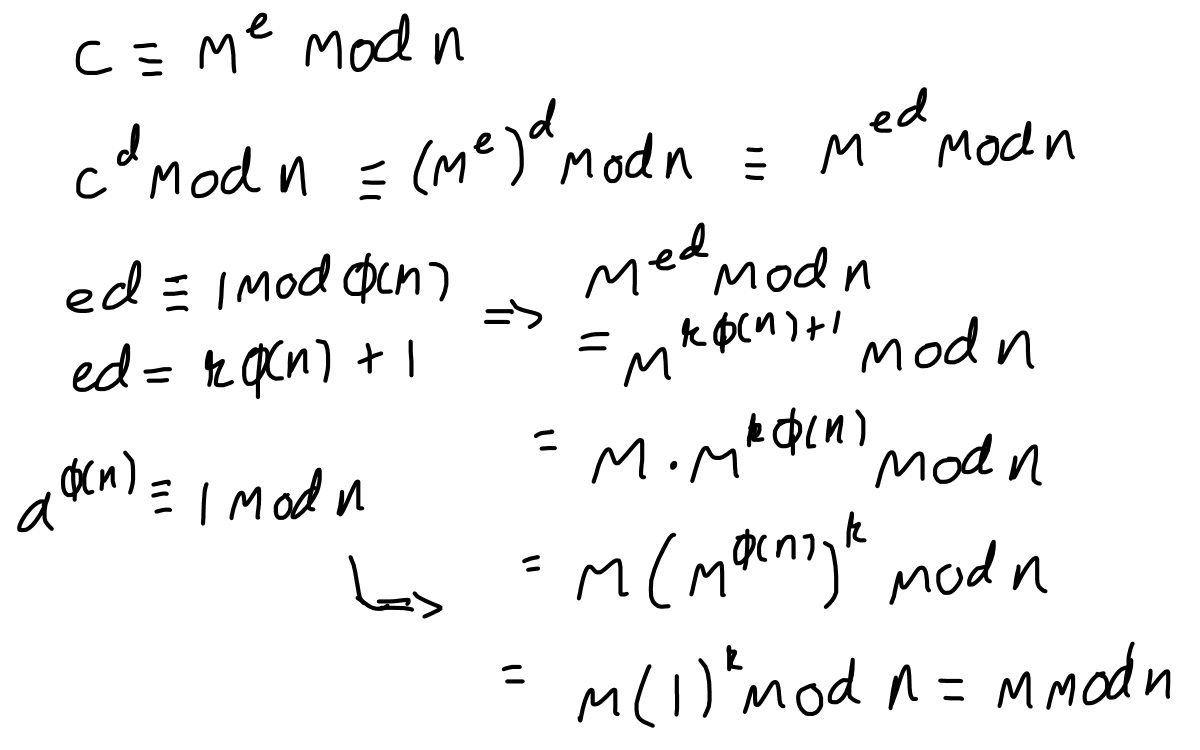 c ≡ m^e mod n
c^d mod n ≡ (m^e)^d mod n ≡ m^{ed} mod n
ed ≡ 1 mod φ(n)
ed = kφ(n) + 1
⇒ m^{ed} mod n
= m^{kφ(n)+1} mod n
= m · m^{kφ(n)} mod n
a^{φ(n)} ≡ 1 mod n
⇒ = m(m^{φ(n)})^k mod n
= m(1)^k mod n = m mod n